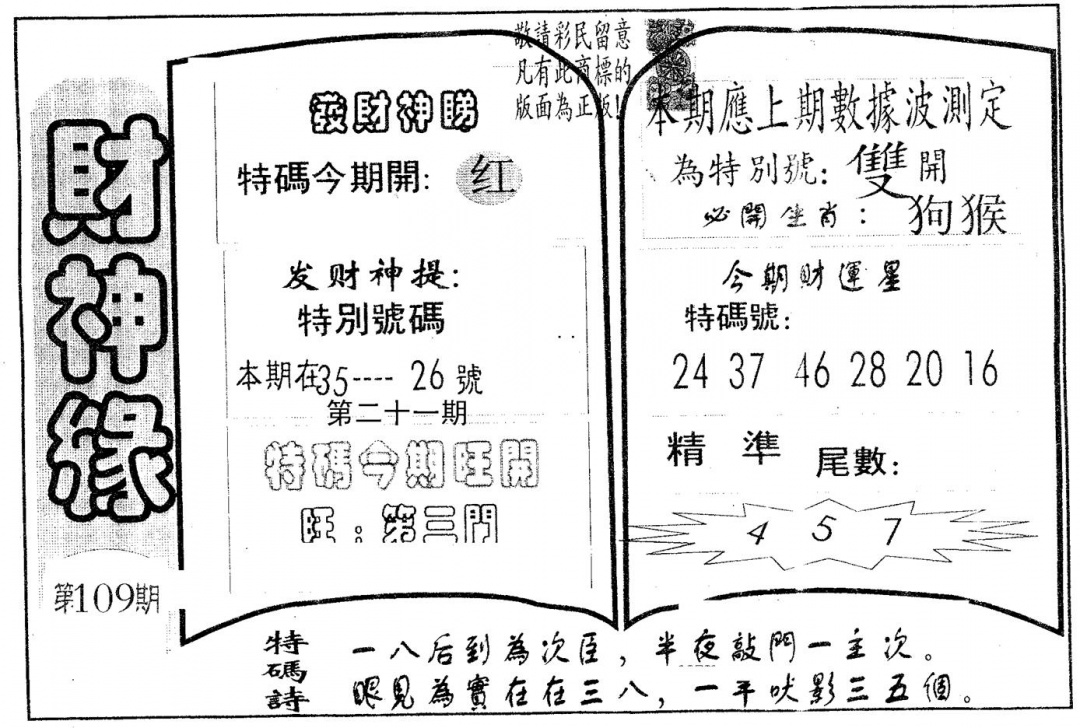 財神緣
第109期
敬請彩民留意
凡有此商標的
版面為正版!
發財神睇
特碼今期開: 红
发财神提:
特別號碼
本期在35---- 26 號
第二十一期
特碼今期旺開
旺:第三門
本期應上期數據波測定
為特別號: 雙開
必開生肖: 狗猴
今期財運星
特碼號:
24 37 46 28 20 16
精 準 尾數:
4 5 7
特碼詩
一八后到為次臣，半夜敲門一主次。
眼見為實在在三八，一平吠影三五個。